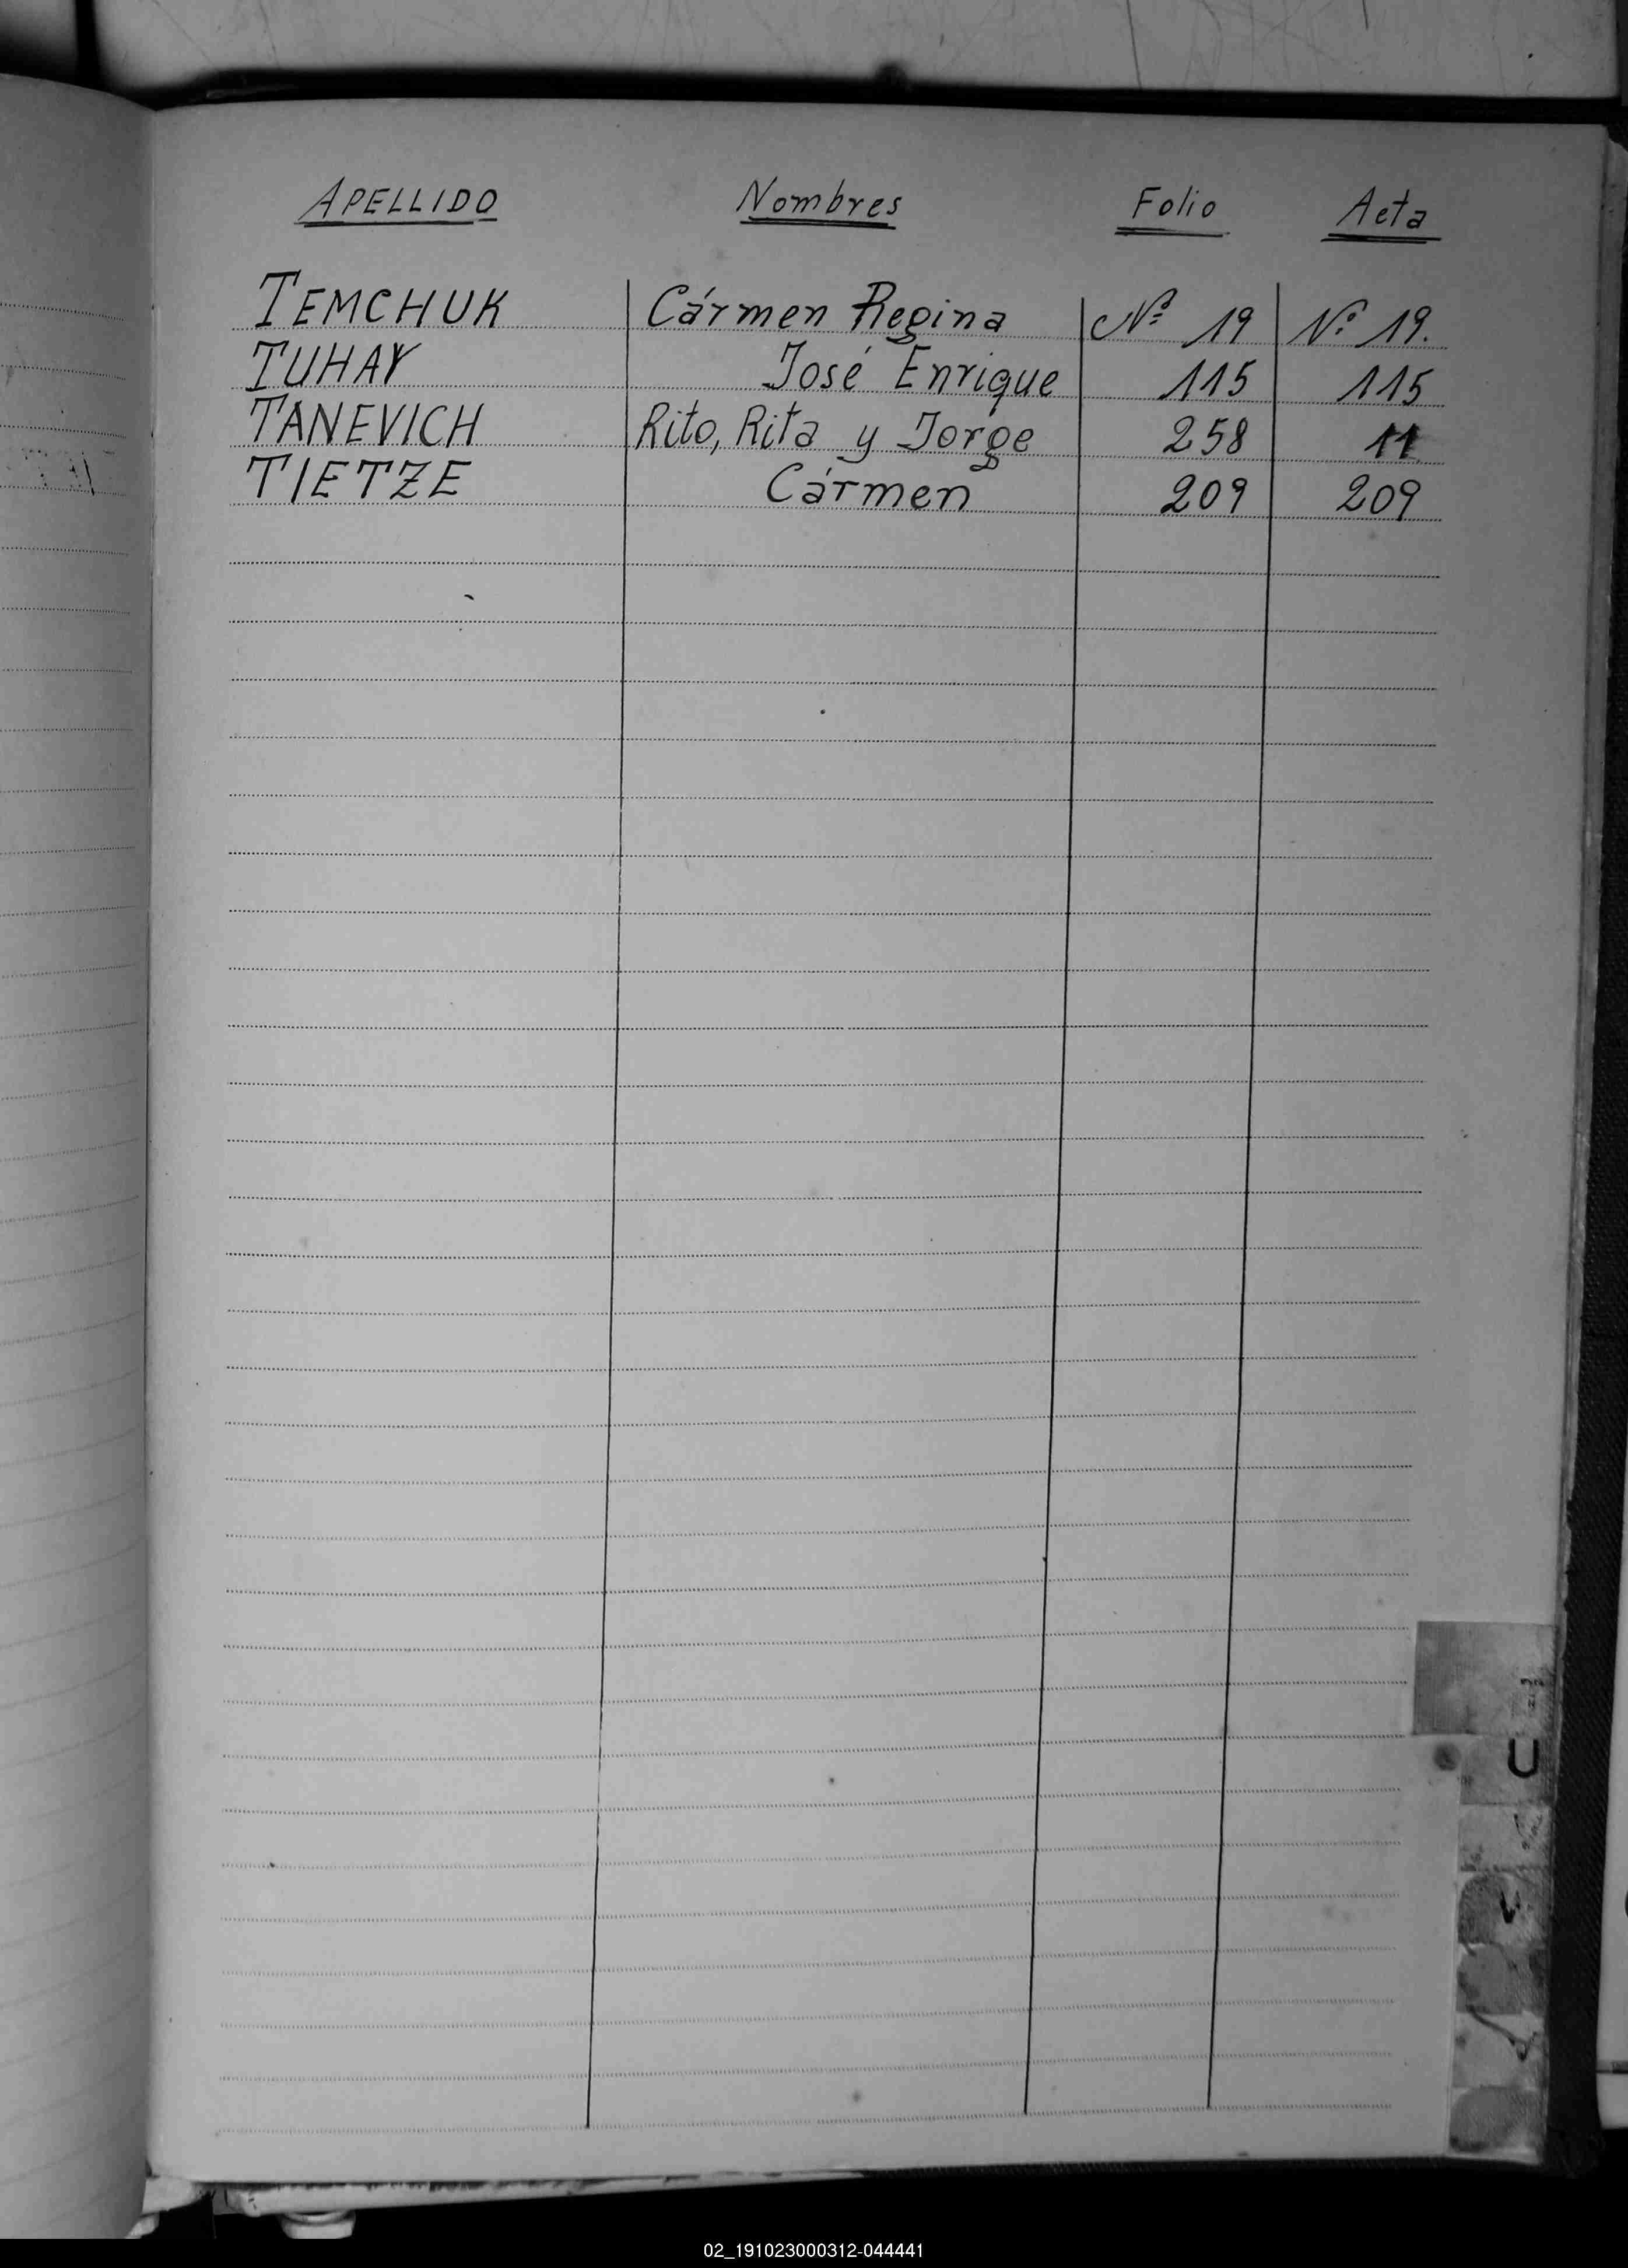 APELLIDO Nombres Folio Acta
TEMCHUK Cármen Regina Nº 19 Nº 19.
TUHAY José Enrique 115 115
TANEVICH Rito, Rita y Jorge 258 11
TIETZE Cármen 209 209
U
V
02_191023000312-044441